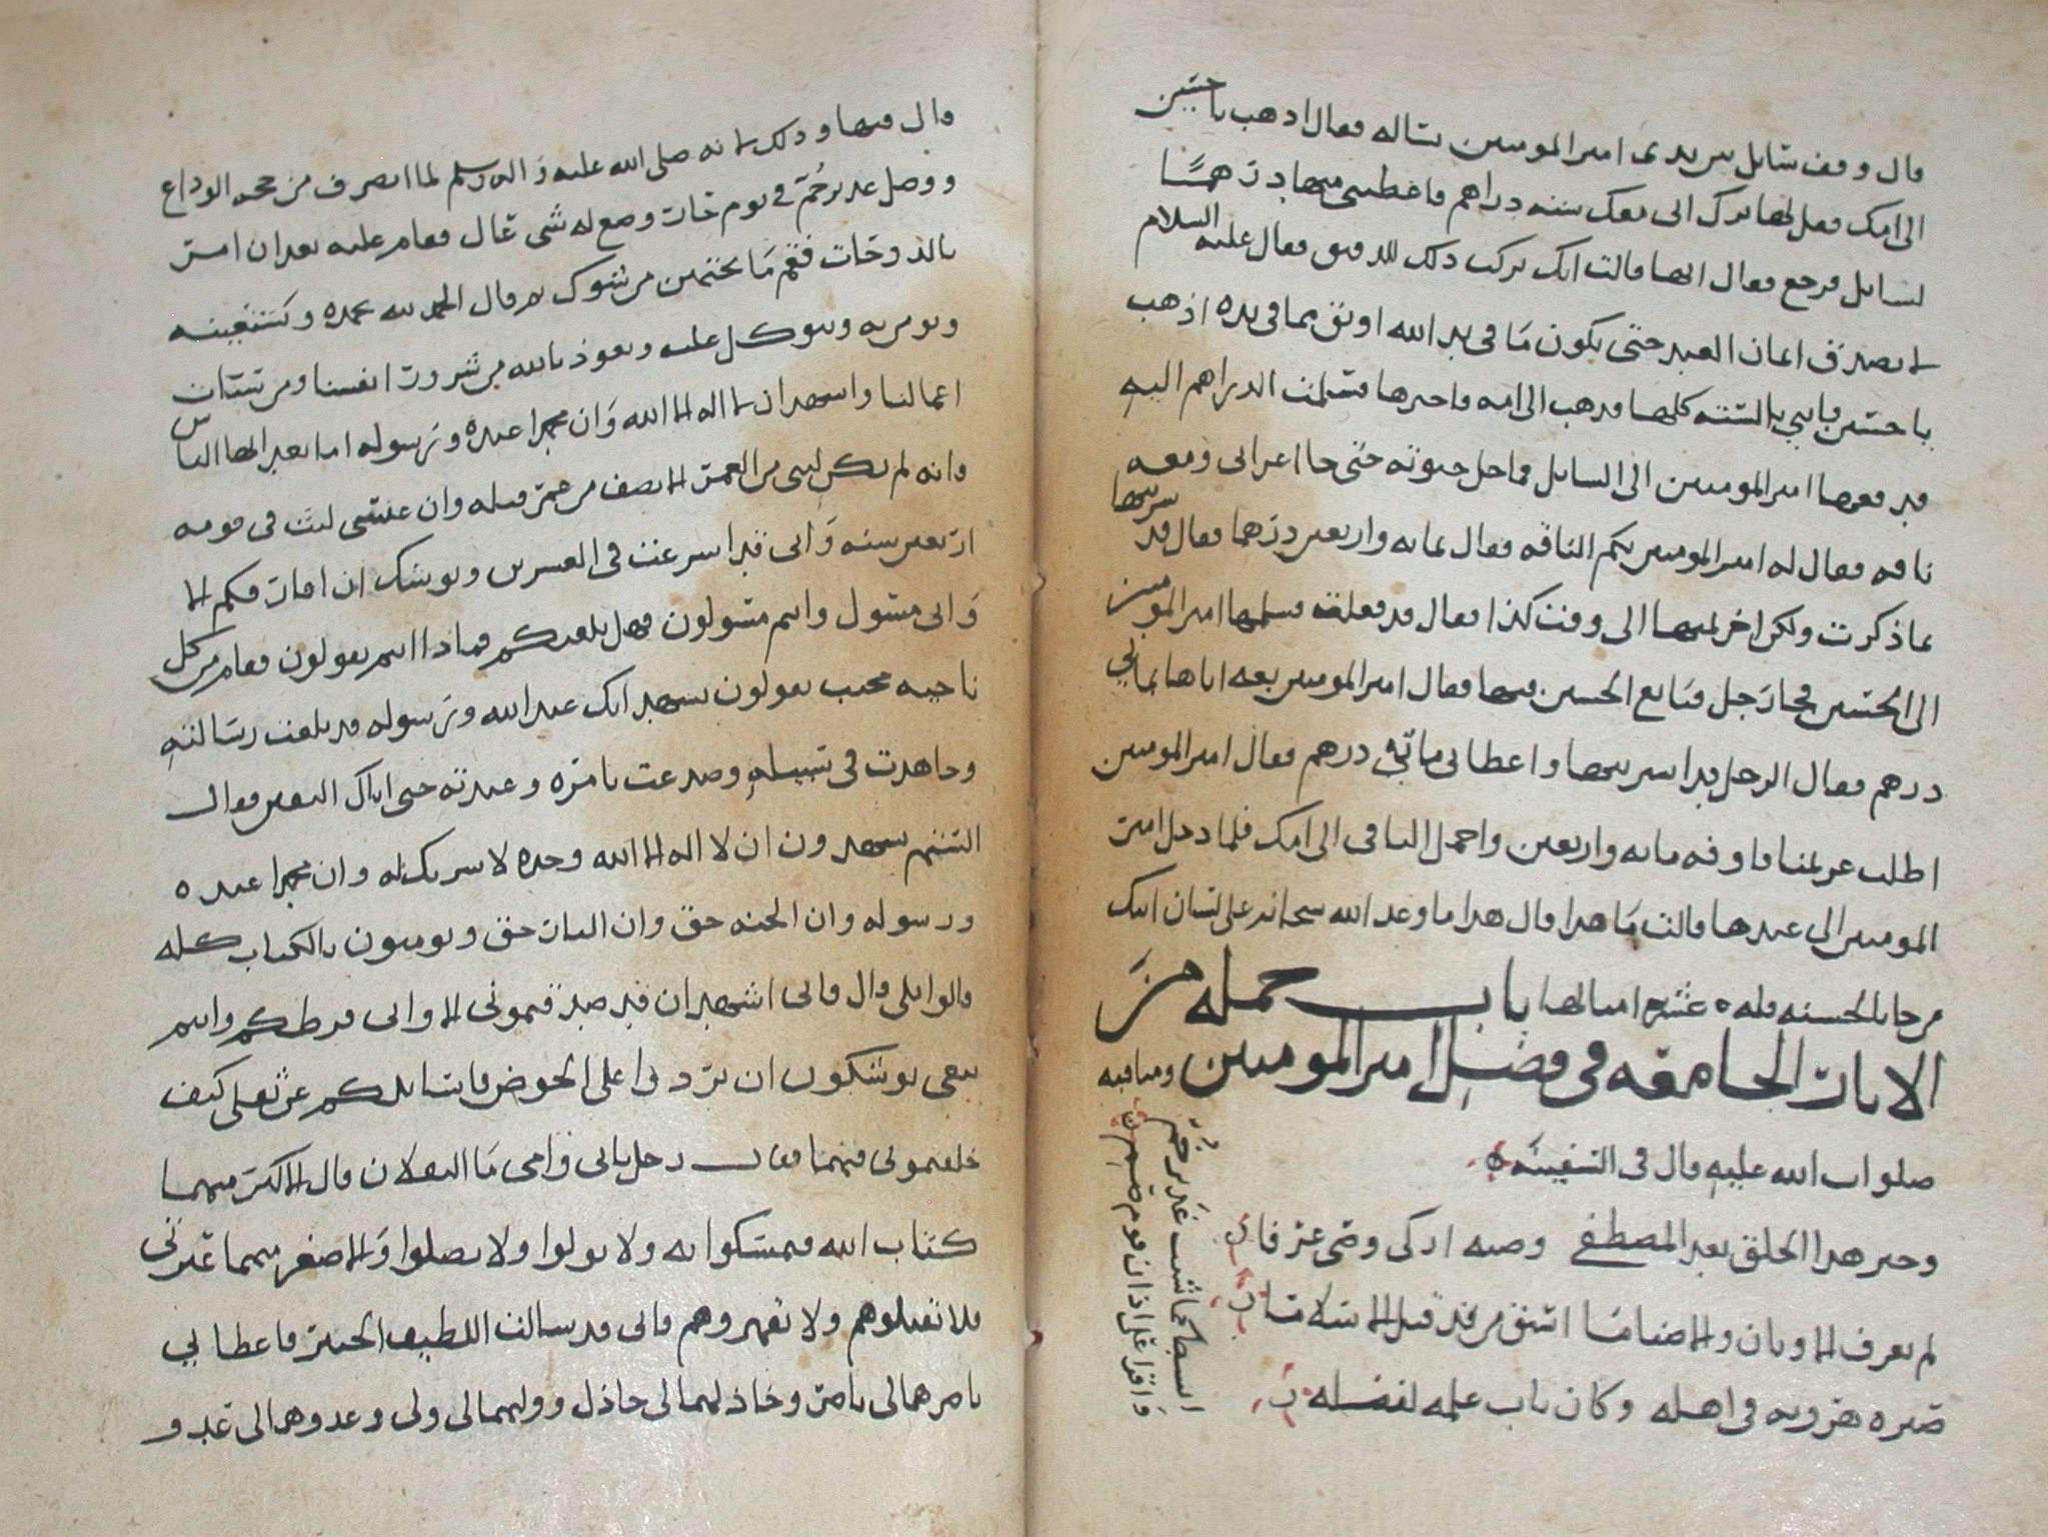 قال وقف سايل بين يدي امير المومنين يساله فقال اذهب يا حسين
الى امك فقل لها ترك ابي معك ستة دراهم فاعطيني منها درهمًا
لسايل فرجع فقال انها قالت انك تركت ذلك للدقيق فقال عليه السلام
لا يصدق ايمان العبد حتى يكون ما في يد الله اوثق مما في يده اذهب
يا حسين فاتني بالستة كلها فذهب الى امه فاخبرها فسلمت الدراهم اليه
فدفعها امير المومنين الى السايل فما حل حبوته حتى جا اعرابي ومعه
ناقة فقال له امير المومنين بكم الناقة فقال بماية واربعين درهما فقال قد شريتها
بما ذكرت ولكن اخر ثمنها الى وقت كذا فقال قد فعلت فسلمها امير المومنين
الى الحسين فجا رجل فبايع الحسين فيها فقال امير المومنين بعه اياها بمايتي
درهم فقال الرجل قد اشتريتها واعطاني مايتي درهم فقال امير المومنين
اطلب غريمنا فاوفه ماية واربعين واحمل الباقي الى امك فلما دخل امير
المومنين الى عندها قالت ما هذا قال هذا ما وعد الله سبحانه على لسان ابيك
من جا بالحسنة فله عشر امثالها باب جملة من
الايات الجامعة في فضل امير المومنين ومناقبه
صلوات الله عليه قال في السفينة
وخير هذا الخلق بعد المصطفى وصيه ازكى وصي عرفا
لم يعرف الاوثان والاصناما اسبق من قد قبل الاسلاما
صيره هرونه في اهله وكان باب علمه لفضله
السبا كما شئت غدير خم
واقرا على اذان قوم صم
قال فيها وذلك لانه صلى الله عليه واله وسلم لما انصرف من حجة الوداع
ووصل غدير خم في يوم حار وضع له شي عال فقام عليه بعد ان امر
بالدوحات فقم ما تحتهن من شوك ثم قال الحمد لله نحمده ونستعينه
ونومن به ونتوكل عليه ونعوذ بالله من شرور انفسنا ومن سيئات
اعمالنا واشهد ان لا اله الا الله وان محمدا عبده ورسوله اما بعد ايها الناس
فانه لم يكن لنبي من العمر الا نصف من عمر قبله وان عيسى لبث في قومه
اربعين سنة واني قد اسرعت في العشرين ويوشك ان افارقكم الا
واني مسول وانتم مسولون فهل بلغتكم فماذا انتم تقولون فقام من كل
ناحية مجيب يقولون نشهد انك عبد الله ورسوله قد بلغت رسالته
وجاهدت في سبيله وصدعت بامره وعبدته حتى اتاك اليقين فقال
الستم تشهدون ان لا اله الا الله وحده لا شريك له وان محمدا عبده
ورسوله وان الجنة حق وان النار حق وتومنون بالكتاب كله
قالوا بلى قال فاني اشهد ان قد صدقتموني الا واني فرطكم وانتم
تبعي توشكون ان تردوا على الحوض فاسايلكم عن ثقلي كيف
خلفتموني فيهما فقال رجل بابي وامي ما الثقلان قال الاكبر منهما
كتاب الله فتمسكوا به ولا تولوا ولا تضلوا والاصغر منهما عترتي
فلا تقتلوهم ولا تقهروهم فاني قد سالت اللطيف الخبير فاعطاني
ناصرهما لي ناصر وخاذلهما لي خاذل ووليهما لي ولي وعدوهما لي عدو